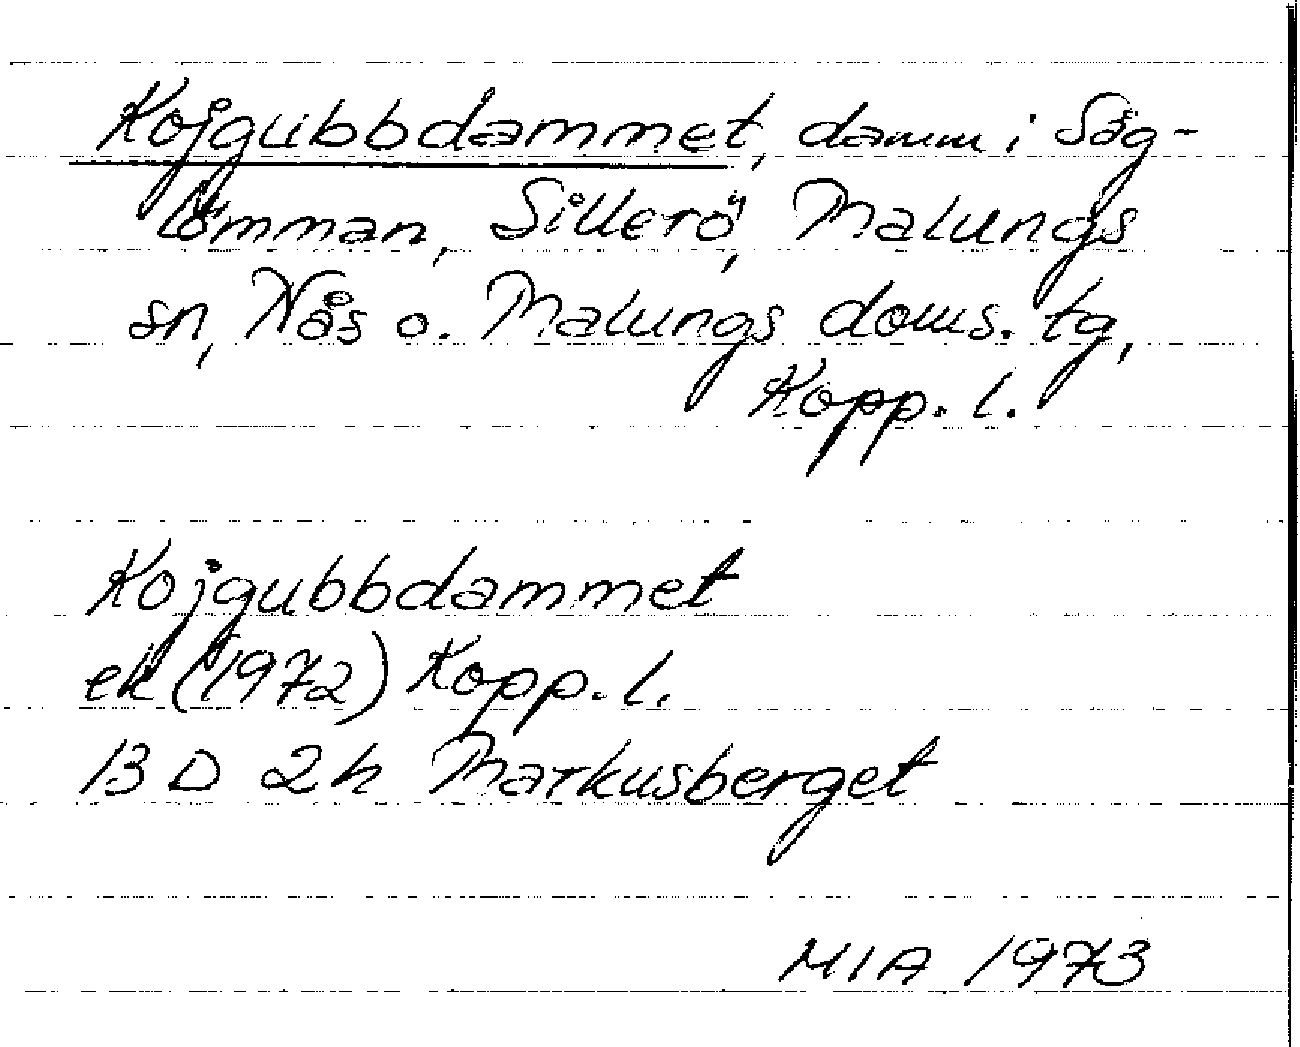 Kojgubbdammet, damm i Såg-
lömman, Sillerö, Malungs
sn, Nås o. Malungs doms. tg,
Kopp. l.
Kojgubbdammet
ek (1972) Kopp. l.
13 D 2h Markusberget
MIA 1973